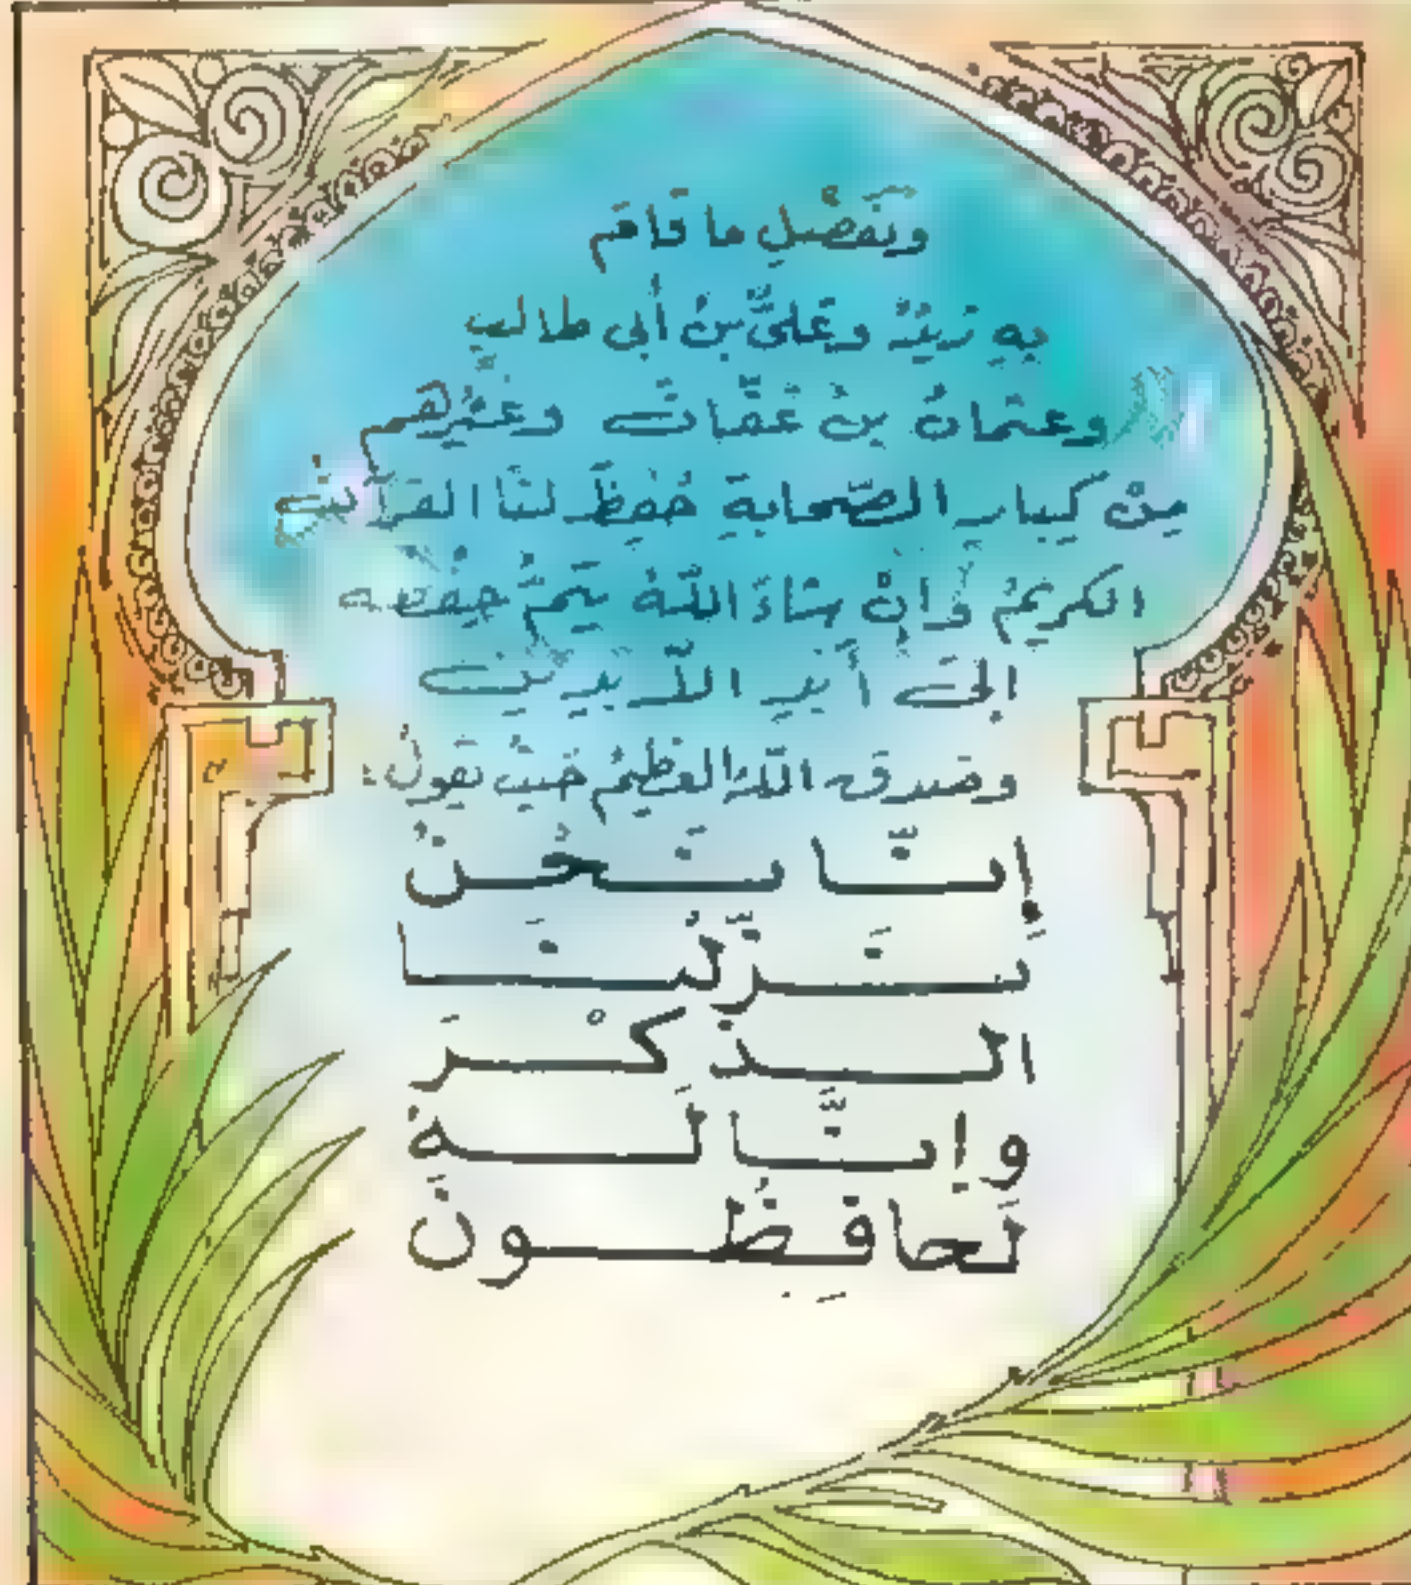 وَبَفَضْلِ ما قامَ
بِهِ زَيْدُ وعَلىُّ بنُ أَبى طالب
وعثمانُ بنُ عَفّانَ وغَيْرُهم
مِنْ كِبارِ الصّحابةِ حُفِظَ لنَا القرآنُ
الكريمُ وَإنْ شاءَ اللّهُ يَتمُّ حِفْظه
إلى أَبَدِ الآبدِينَ
وصدق اللّهُ العظيمُ حَيثُ يَقولُ:
إِنَّا نَحْنُ
نَزَّلْنَا
الذِكْرَ
وإنَّا لَهُ
لَحافِظُونَ